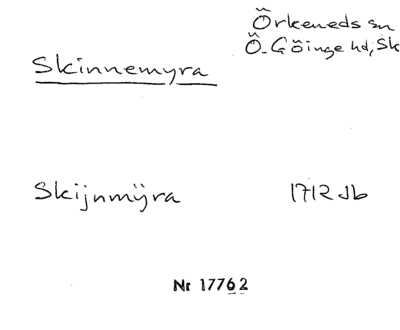 Örkeneds sn
Ö. Göinge hd, Sk
Skinnemyra
Skijnmÿra 1712 Jb
Nr 17762